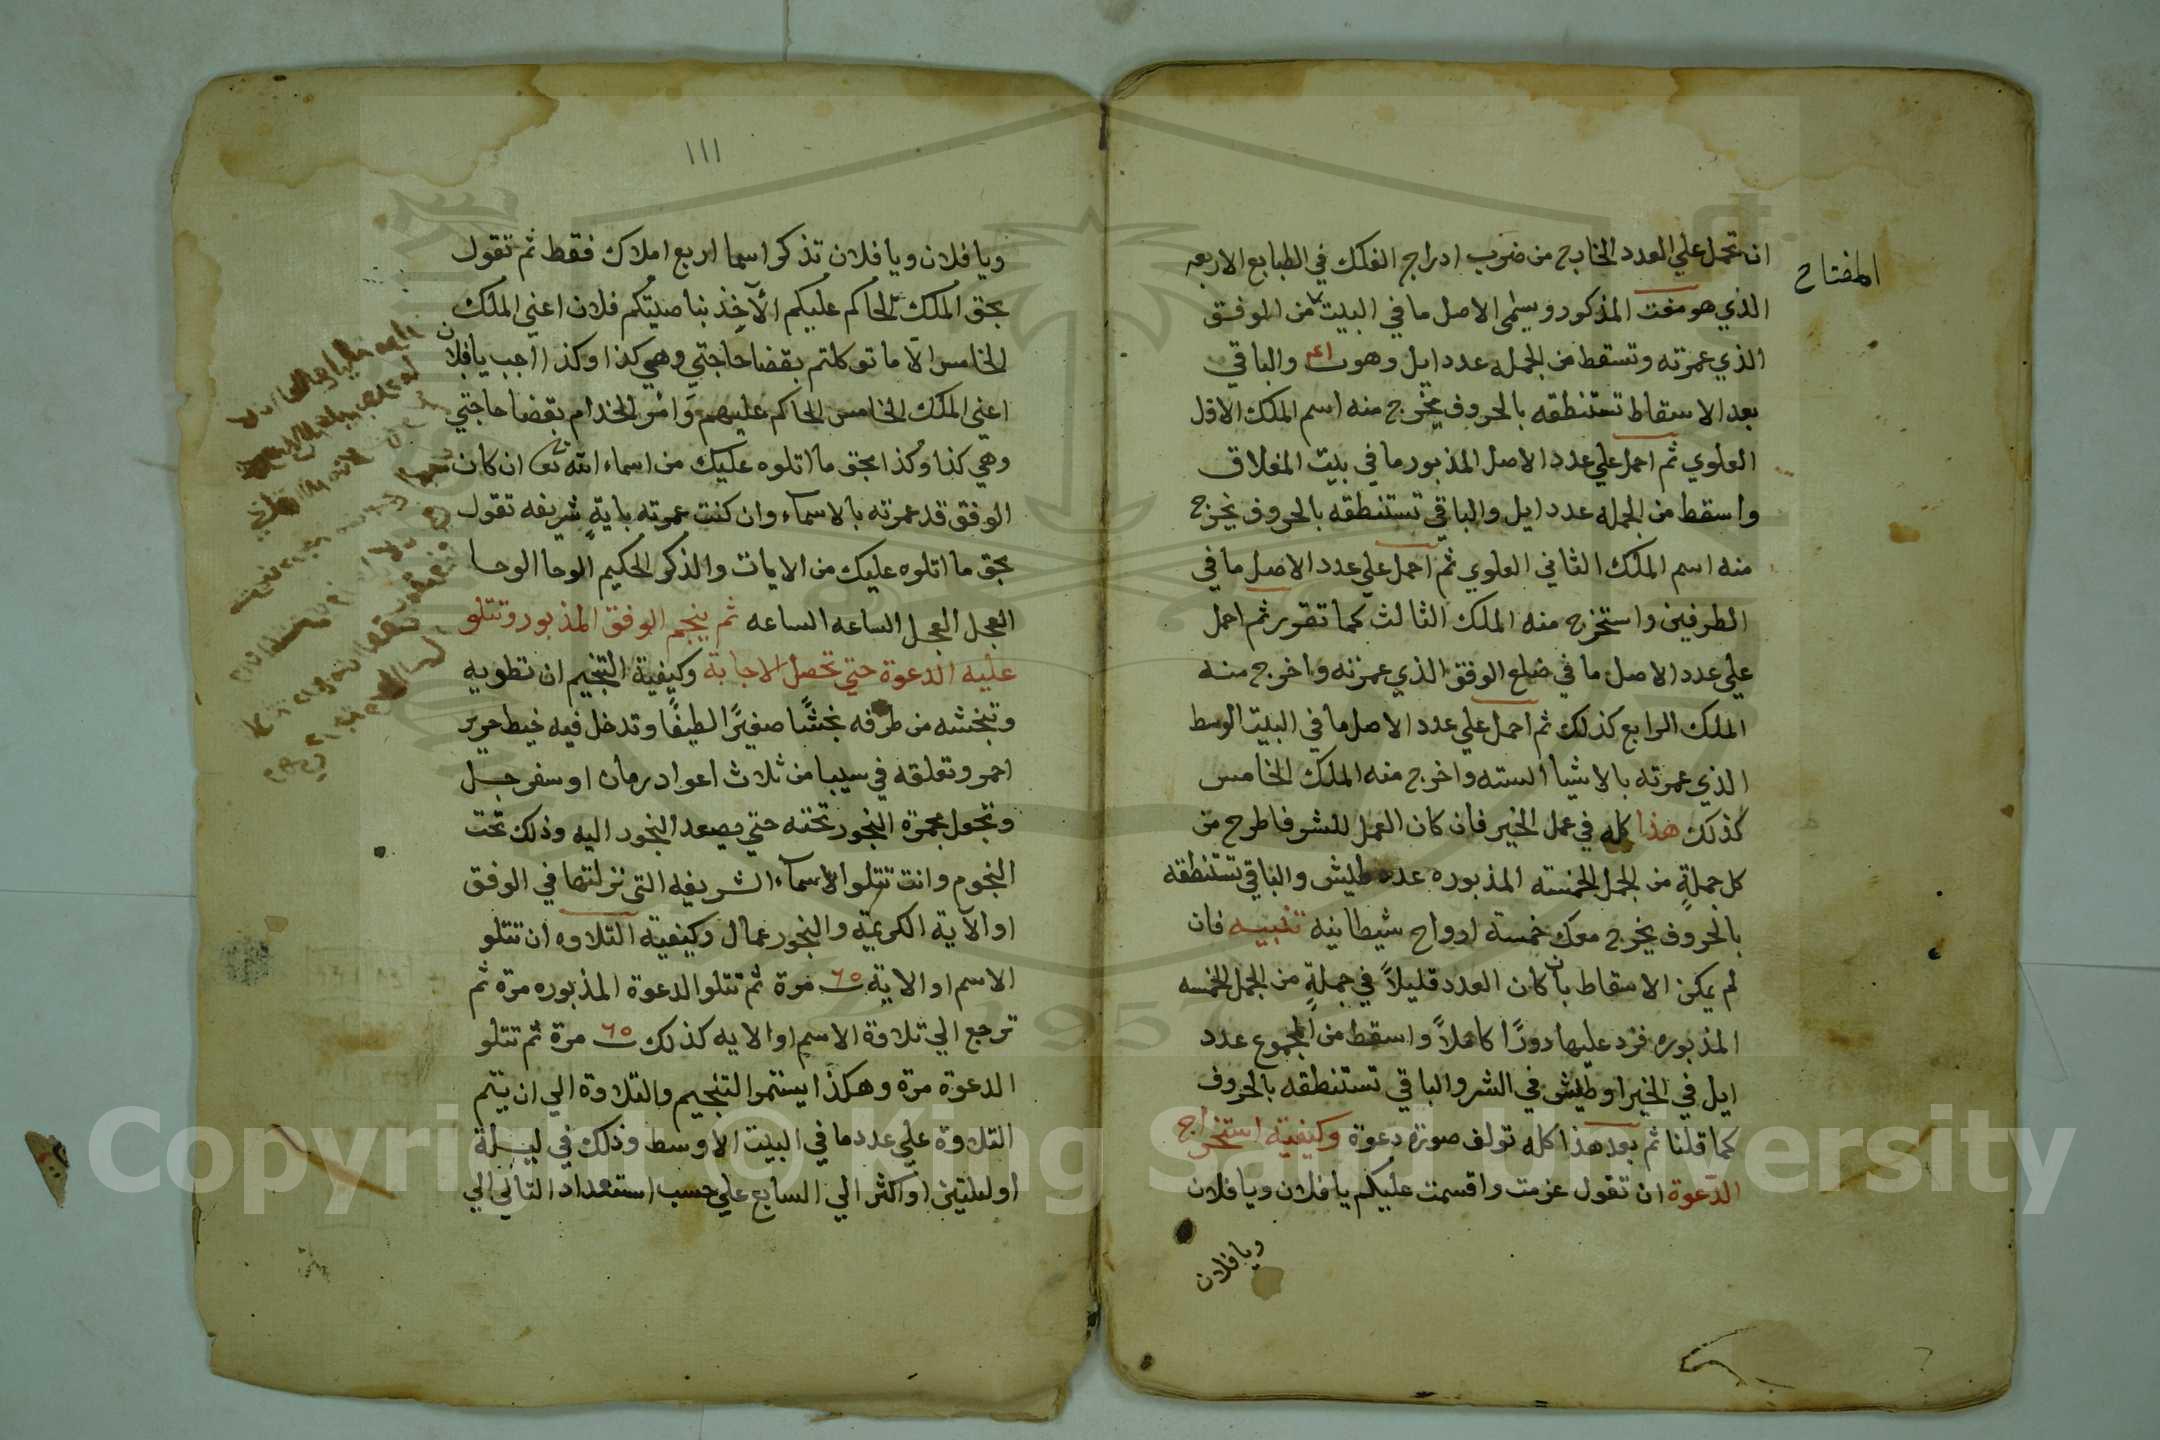 المفتاح
ان تحمل علي العدد الخارج من ضرب ادراج الفلك في الطبايع الاربعه
الذي هو مفت المذكور ويسمى الاصل ما في البيت من الوفق
الذي عمرته وتسقط من الجمله عدد ايل وهو ٤١ والباقي
بعد الاسقاط تستنطقه بالحروف يخرج منه اسم الملك الاول
العلوي ثم احمل علي عدد الاصل المذبور ما في بيت المغلاق
واسقط من الجمله عدد ايل والباقي تستنطقه بالحروف يخرج
منه اسم الملك الثاني العلوي ثم احمل علي عدد الاصل ما في
الطرفين واستخرج منه الملك الثالث كما تقور ثم احمل
علي عدد الاصل ما في ضلع الوفق الذي عمرته واخرج منه
الملك الرابع كذلك ثم احمل علي عدد الاصل ما في البيت الوسط
الذي عمرته بالاشيا السته واخرج منه الملك الخامس
كذلك هذا كله في عمل الخير فان كان العمل للشر فاطرح من
كل جملةٍ من الجمل الخمسته المذبوره عدد طيش والباقي تستنطقه
بالحروف يخرج معك خمسة ارواح شيطانيه تنبيه فان
لم يمكن الاسقاط بان كان العدد قليلاً في جملةٍ من الجمل الخمسه
المذبوره فزد عليها دورًا كاملاً واسقط من المجموع عدد
ايل في الخير او طيش في الشر والباقي تستنطقه بالحروف
كما قلنا ثم بعد هذا كله تولف صورة دعوة وكيفية استخراج
الدعوة ان تقول عزمت واقسمت عليكم يا فلان ويا فلان
ويا فلان
١١١
ويا فلان ويا فلان تذكر اسما اربع املاك فقط ثم تقول
بحق الملك الحاكم عليكم الآخِذ بناصيتكم فلان اعني الملك
الخامس الّا ما توكلتم بقضا حاجتي وهي كذا وكذا اجب يا فلان
اعني الملك الخامس الحاكم عليهم وَامُر الخدام بقضا حاجتي
وهي كذا وكذا بحق ما اتلوه عليك من اسماء الله تعالى ان كان
الوفق قد عمرته بالاسماء وان كنت عمرته بايةٍ شريفه تقول
بحق ما اتلوه عليك من الايات والذكر الحكيم الوحا الوحا
العجل العجل الساعه الساعه ثم ينجم الوفق المذبور وتتلو
عليه الدعوة حتي تحصل الاجابة وكيفية التنجيم ان تطويه
وتبخشه من طرفه بخشًا صغيرًا لطيفًا وتدخل فيه خيط حرير
احمر وتعلقه في سيبا من ثلاث اعواد رمان او سفرجل
وتجعل مجمرة البخور تحته حتي يصعد البخور اليه وذلك تحت
النجوم وانت تتلو الاسماء الشريفه التي نزلتها في الوفق
او الآية الكريمة والبخور عمال وكيفية التلاوه ان تتلو
الاسم او الاية ٦٥ مرة ثم تتلو الدعوة المذبوره مرة ثم
ترجع الي تلاوة الاسم او الايه كذلك ٦٥ مرة ثم تتلو
الدعوة مرة وهكذا يستمر التنجيم والتلاوة الي ان يتم
التلاوة علي عدد ما في البيت الاوسط وذلك في ليلة
او ليلتين او اكثر الي السابع علي حسب استعداد التالي الي
Copyright © King Saud University
1957